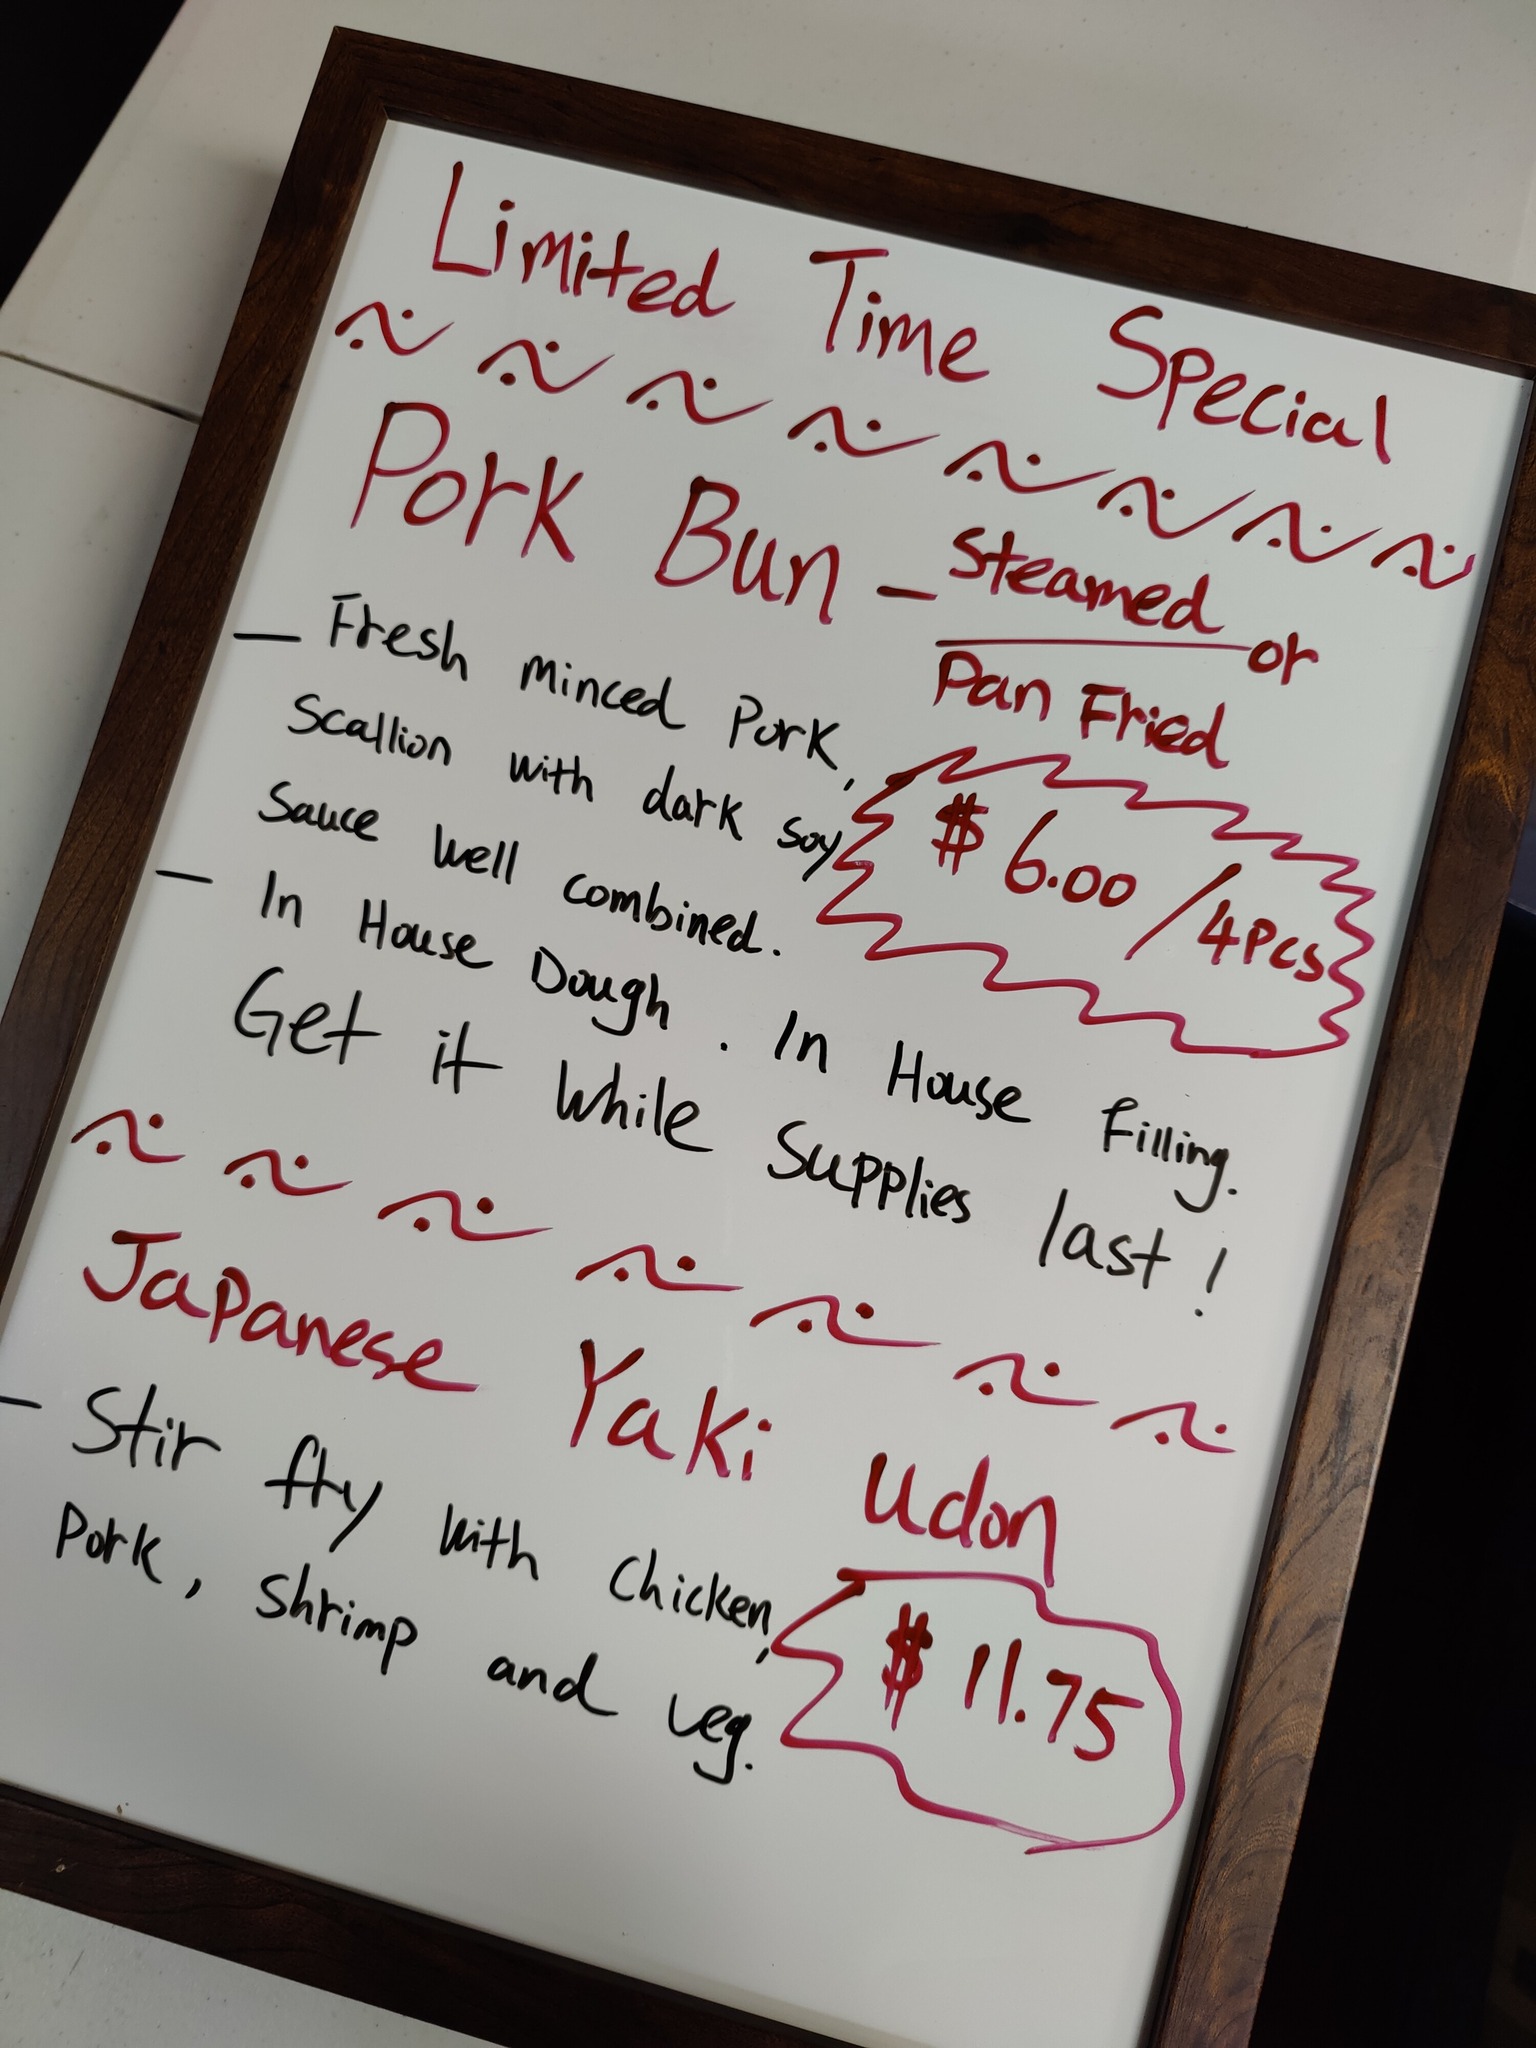 Limited Time Special
Pork Bun - Steamed or
Pan Fried
- Fresh minced Pork,
Scallion with dark soy
Sauce well combined.
$6.00/4Pcs
- In House Dough. In House Filling.
Get it While Supplies last!
Japanese Yaki udon
- Stir fry with Chicken,
Pork, Shrimp and veg.
$11.75